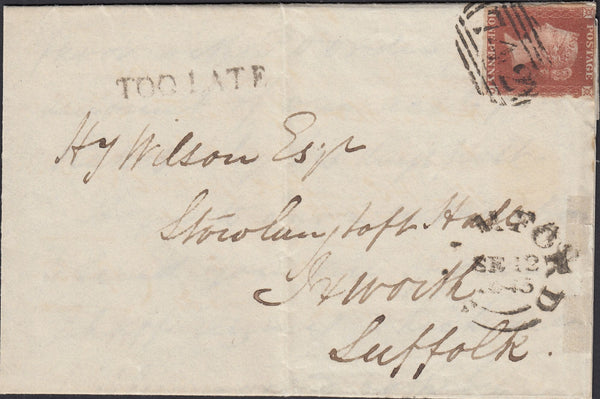 POSTAGE
ONE PENNY
TOO LATE
Hy Wilson Esqr
Stowlangtoft Hall
Ixworth
Suffolk.
SE 12
1845